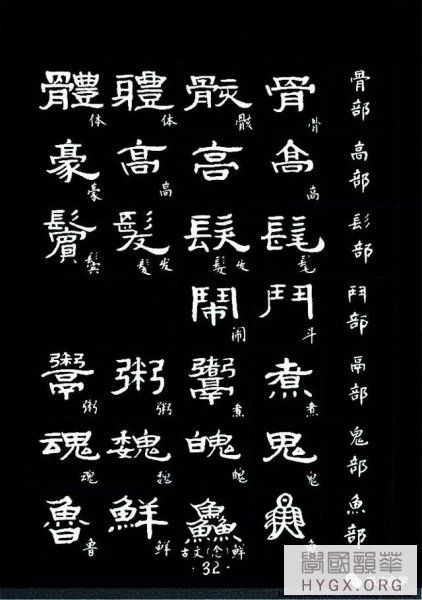 骨部 骨 骨 骸 骸 軆 体 體 体
高部 高 高 高 髙 高 豪 豪
髟部 髦 髦 髮 髮 发 髮 髮 发 鬢 鬓
鬥部 鬥 斗 鬧 闹
鬲部 煮 煮 煮 粥 粥 鬻 粥
鬼部 鬼 鬼 魄 魄 魏 魏 魂 魂
魚部 鱻 古文(念)鮮 鮮 鮮 魯 鲁
·32·
學國韻華
HYGX.ORG